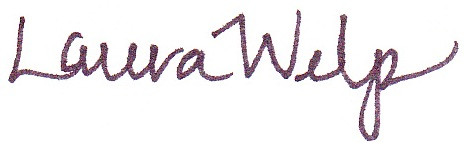 Laura Welp